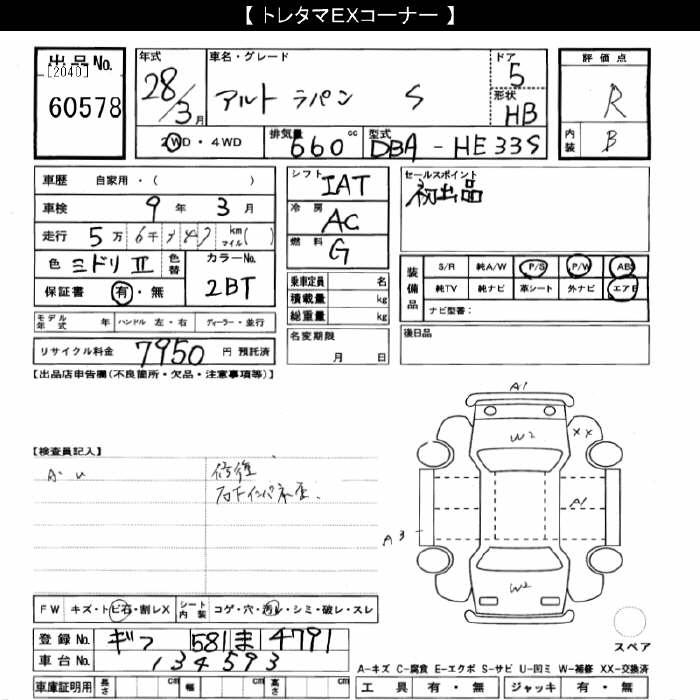 【 トレタマEXコーナー 】
出品No.
[2040]
60578
年式
28/3月
車名・グレード
アルト ラパン S
ドア
5
形状
HB
評価点
R
内装
B
2WD・4WD
排気量
660 cc
型式
DBA - HE33S
車歴 自家用・( )
車検 9年 3月
走行 5万 6千 km マイル( )
色 ミドリⅡ
色替
カラーNo.
2BT
保証書 有・無
モデル年式 年 ハンドル 左・右 ディーラー・並行
リサイクル料金 7950 円 預託済
シフト
IAT
冷房
AC
燃料
G
乗車定員 名
積載量 kg
総重量 kg
名変期限
月 日
セールスポイント
初出品
装備品
S/R 純A/W P/S P/W ABS
純TV 純ナビ 革シート 外ナビ エアB
ナビ型番:
後日品
【出品店申告欄(不良箇所・欠品・注意事項等)】
【検査員記入】
修復
A1
W2
XX
A1
A3
W2
スペア
FW キズ・トビ石・割レX
シート内装 コゲ・穴・汚レ・シミ・破レ・スレ
登録No. ギフ 581 ま 4791
車台No. 134593
車庫証明用 長さ cm 幅 cm 高さ cm
A-キズ C-腐食 E-エクボ S-サビ U-凹ミ W-補修 XX-交換済
工具 有・無 ジャッキ 有・無